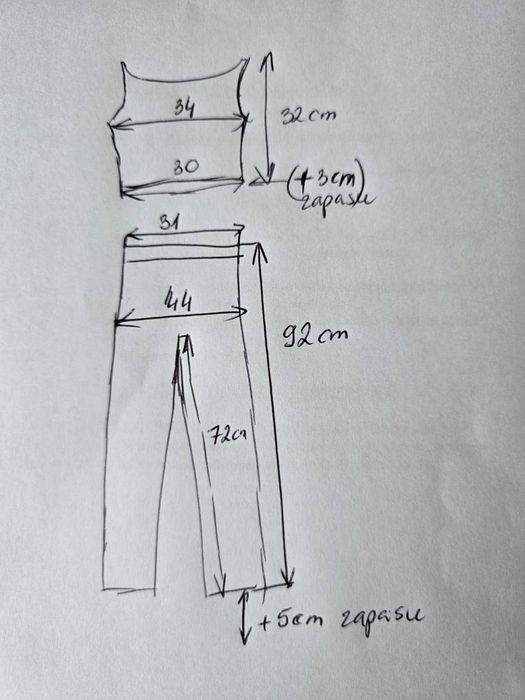 34
32cm
30
(+3cm)
zapasu
31
44
92cm
72cm
+5cm zapasu